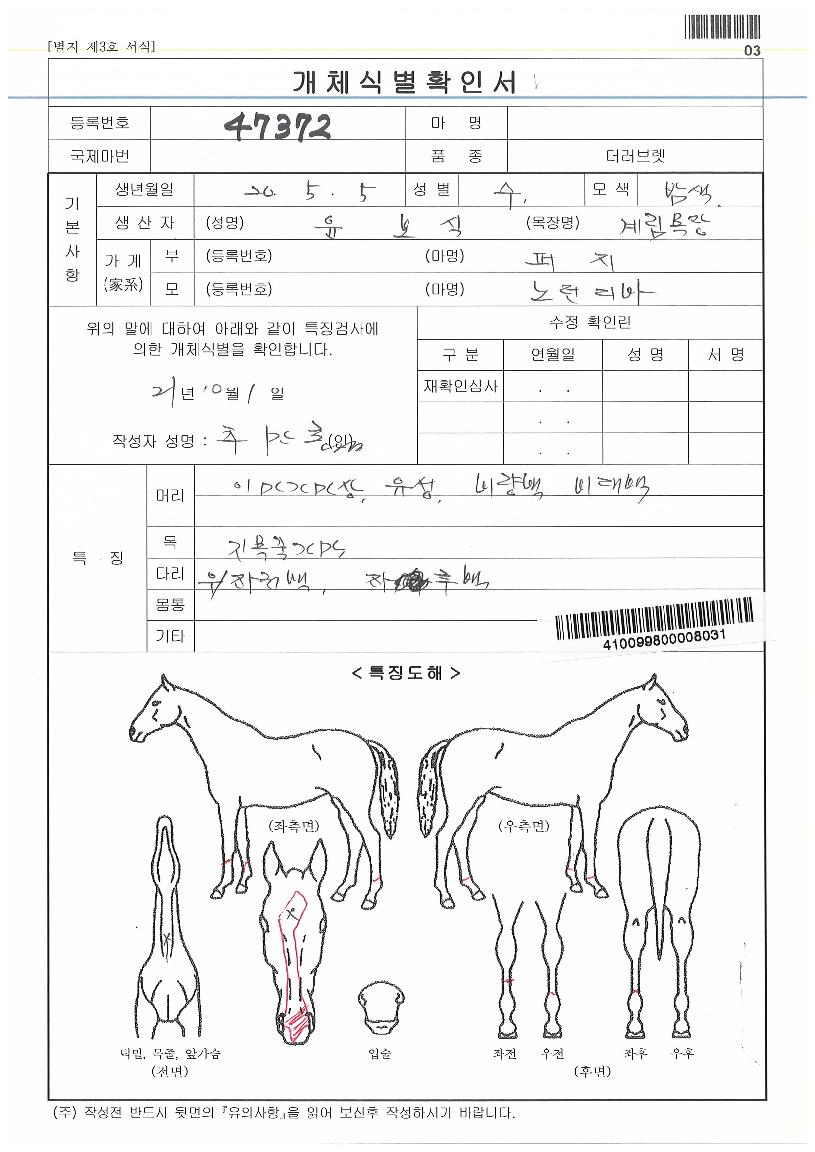 [별지 제3호 서식]
03
개체식별확인서
등록번호 47372 마 명
국제마번 품 종 더러브렛
기본사항
생년월일 20. 5. 5 성 별 수. 모 색 밤색.
생 산 자 (성명) 윤 보 식 (목장명) 계림목장
가 계 (家系) 부 (등록번호) (마명) 퍼 지
모 (등록번호) (마명) 노런리바
위의 말에 대하여 아래와 같이 특징검사에
의한 개체식별을 확인합니다.
21년 10월 1 일
작성자 성명 : (인)
수정 확인린
구 분 연월일 성 명 서 명
재확인심사 . .
. .
. .
특 징
머리 유성, 비량백 비대백
목
다리
몸통
기타
410099800008031
< 특징도해 >
(좌측면) (우측면)
턱밑, 목줄, 앞가슴 입술 좌전 우전 좌후 우후
(전면) (후면)
(주) 작성전 반드시 뒷면의 『유의사항』을 읽어 보신후 작성하시기 바랍니다.